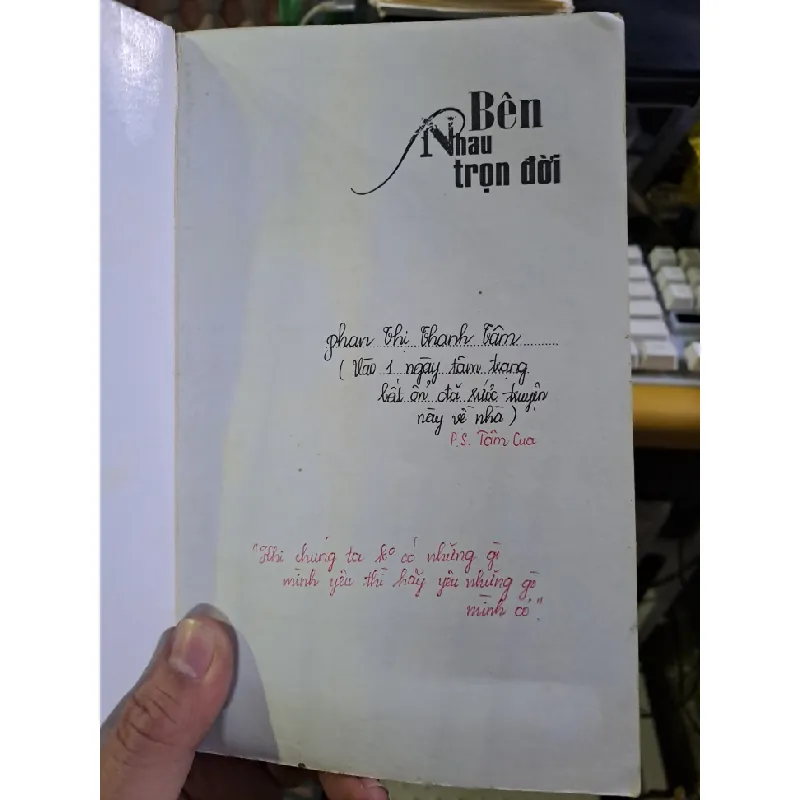 Bên
Nhau
trọn đời
phan Thị Thanh Tâm
(Vào 1 ngày tâm trạng
bất ổn đã rước truyện
này về nhà)
P.S. Tâm Cua
"Khi chúng ta ko có những gì
mình yêu thì hãy yêu những gì
mình có".